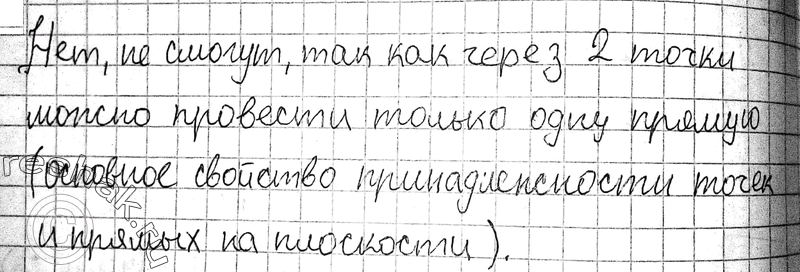 Нет, не смогут, так как через 2 точки
можно провести только одну прямую
(основное свойство принадлежности точек
и прямых на плоскости).